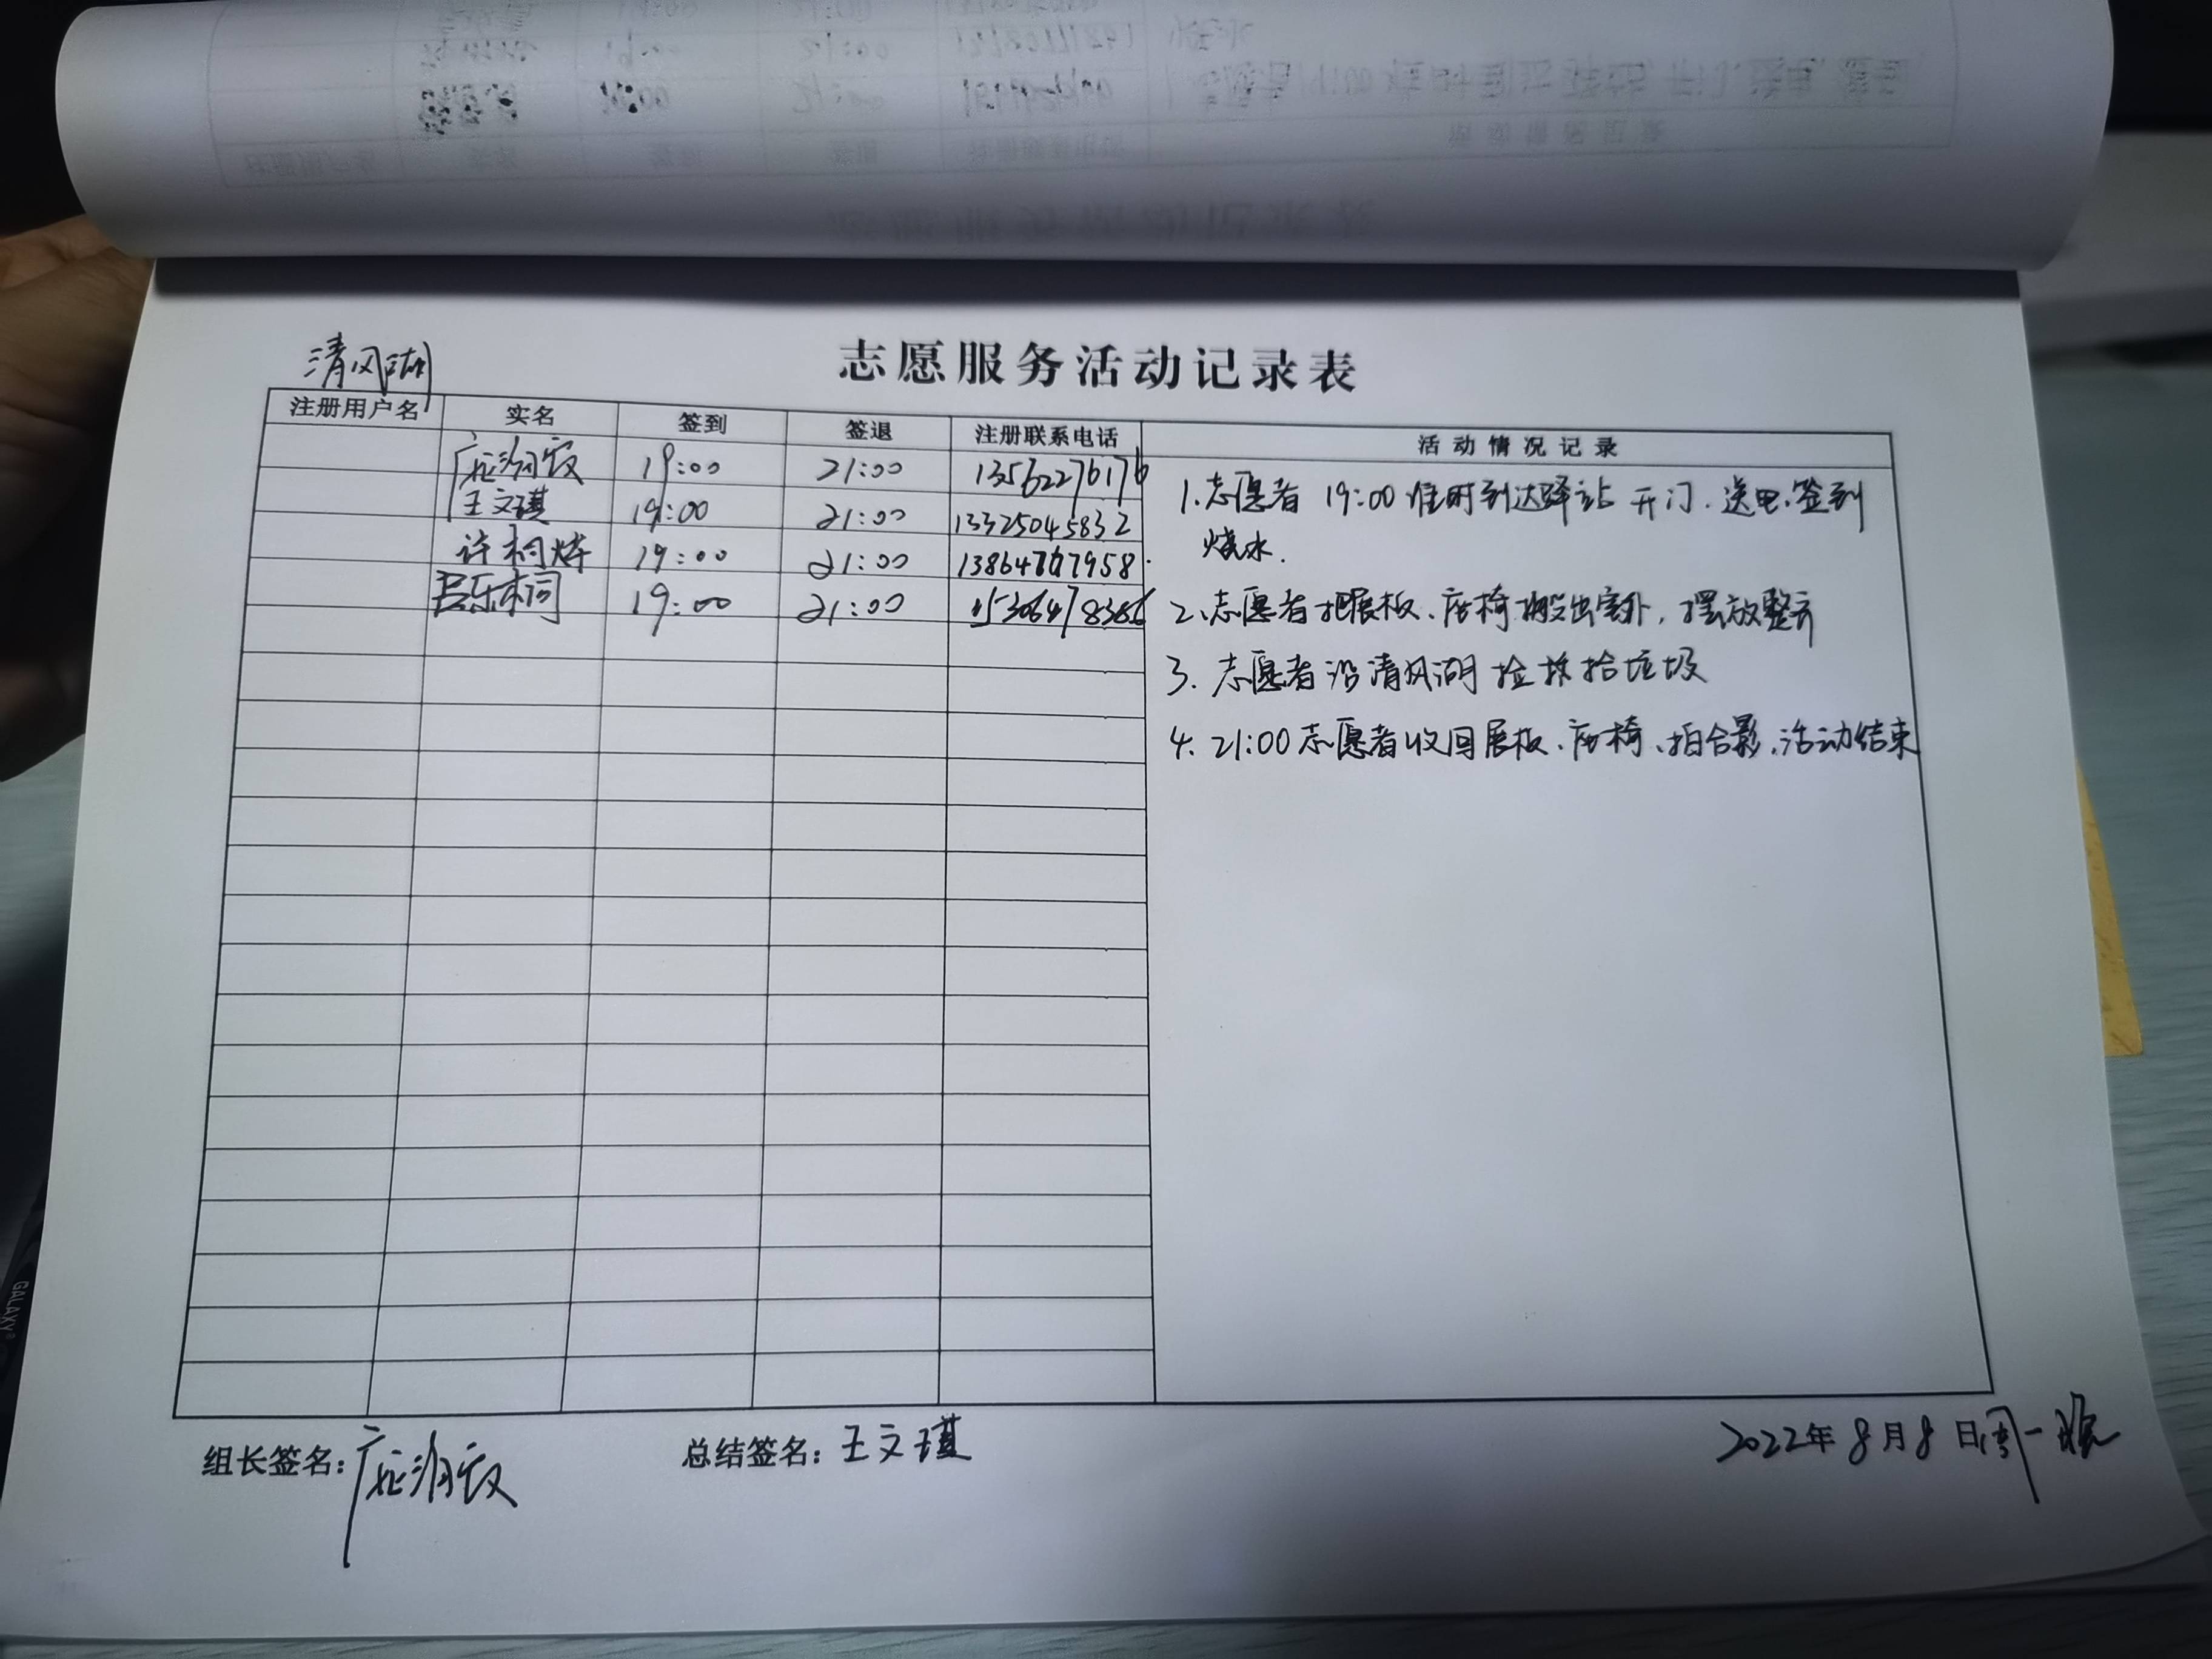 清风湖
志愿服务活动记录表
注册用户名 实名 签到 签退 注册联系电话 活动情况记录
19:00 21:00 13562276176
王文琪 19:00 21:00 13325045832
19:00 21:00
19:00 21:00
1. 志愿者 19:00 准时到达驿站 开门、送电、签到
烧水.
2、志愿者把展板、座椅搬出室外，摆放整齐
3. 志愿者沿清风湖捡拾垃圾
4. 21:00 志愿者收回展板、座椅、拍合影、活动结束
组长签名：
总结签名：王文琪
2022年8月8日周一晚
GALAXY